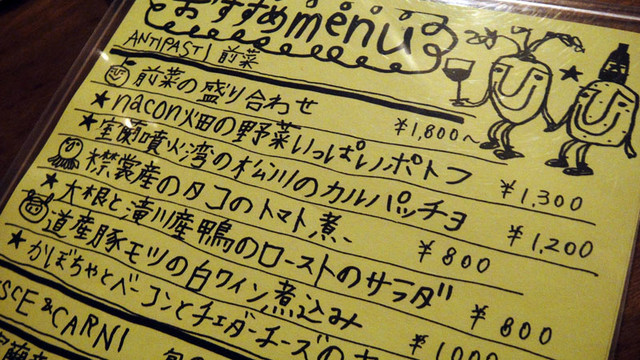 おすすめmenu
ANTIPASTI 前菜
前菜の盛り合わせ ¥1,800~
★nacon畑の野菜いっぱいポトフ ¥1,300
★室蘭噴火湾の松川のカルパッチョ ¥1,200
襟裳産のタコのトマト煮 ¥800
★大根と滝川産鴨のローストのサラダ ¥800
道産豚モツの白ワイン煮込み
★かぼちゃとベーコンとチェダーチーズの
& CARNI